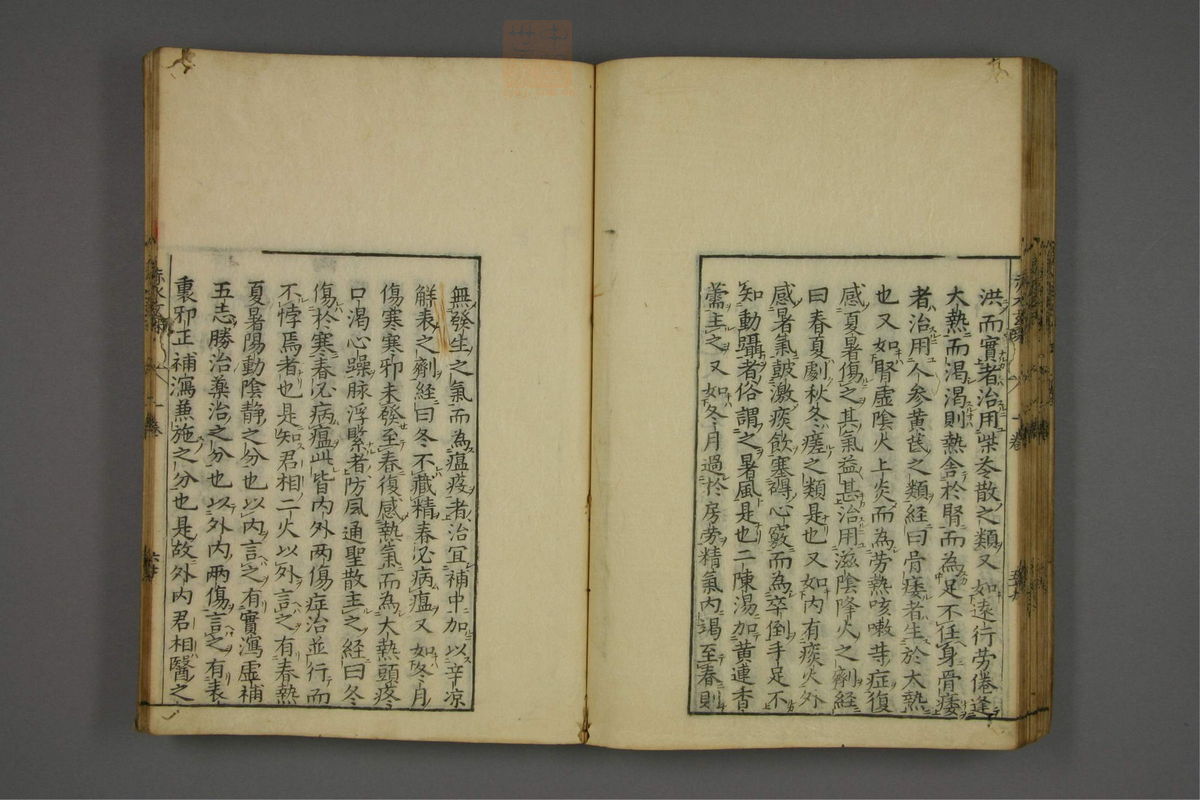 洪而實者治用柴苓散之類又如遠行勞倦逢
大熱而渴渴則熱舍於腎而為足不任身骨痿
者治用人參黃芪之類經曰骨痿者生於大熱
也又如腎虛陰火上炎而為勞熱咳嗽等症復
感夏暑傷之其氣益甚治用滋陰降火之劑經
曰春夏劇秋冬瘥之類是也又如內有痰火外
感暑氣皷激痰飲塞碍心竅而為卒倒手足不
知動躡者俗謂之暑風是也二陳湯加黃連香
薷主之又如冬月過於房勞精氣內竭至春則
無發生之氣而為瘟疫者治宜補中加以辛凉
觧表之劑經曰冬不藏精春必病瘟又如冬月
傷寒寒邪未發至春復感熱氣而為大熱頭疼
口渴心躁脉浮緊者防風通聖散主之經曰冬
傷於寒春必病瘟此皆內外兩傷症治並行而
不悖焉者也是知君相二火以外言之有春熱
夏暑陽動陰静之分也以內言之有實瀉虛補
五志勝治藥治之分也以外內兩傷言之有表
裏邪正補瀉兼施之分也是故外內君相醫之
赤水玄
一卷
六十